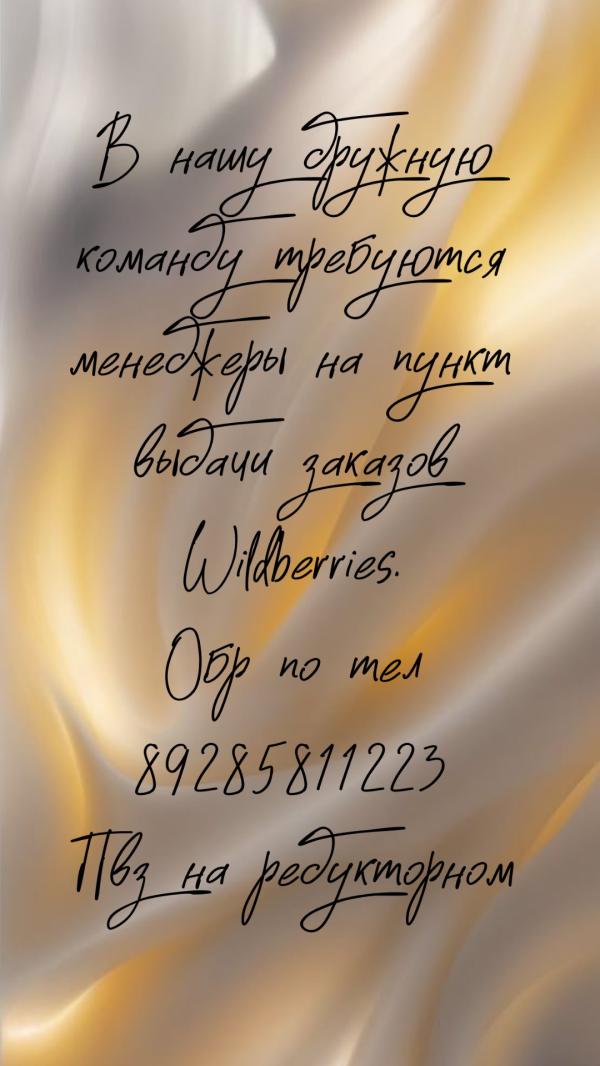 В нашу дружную
команду требуются
менеджеры на пункт
выдачи заказов
Wildberries.
Обр по тел
89285811223
Пвз на редукторном